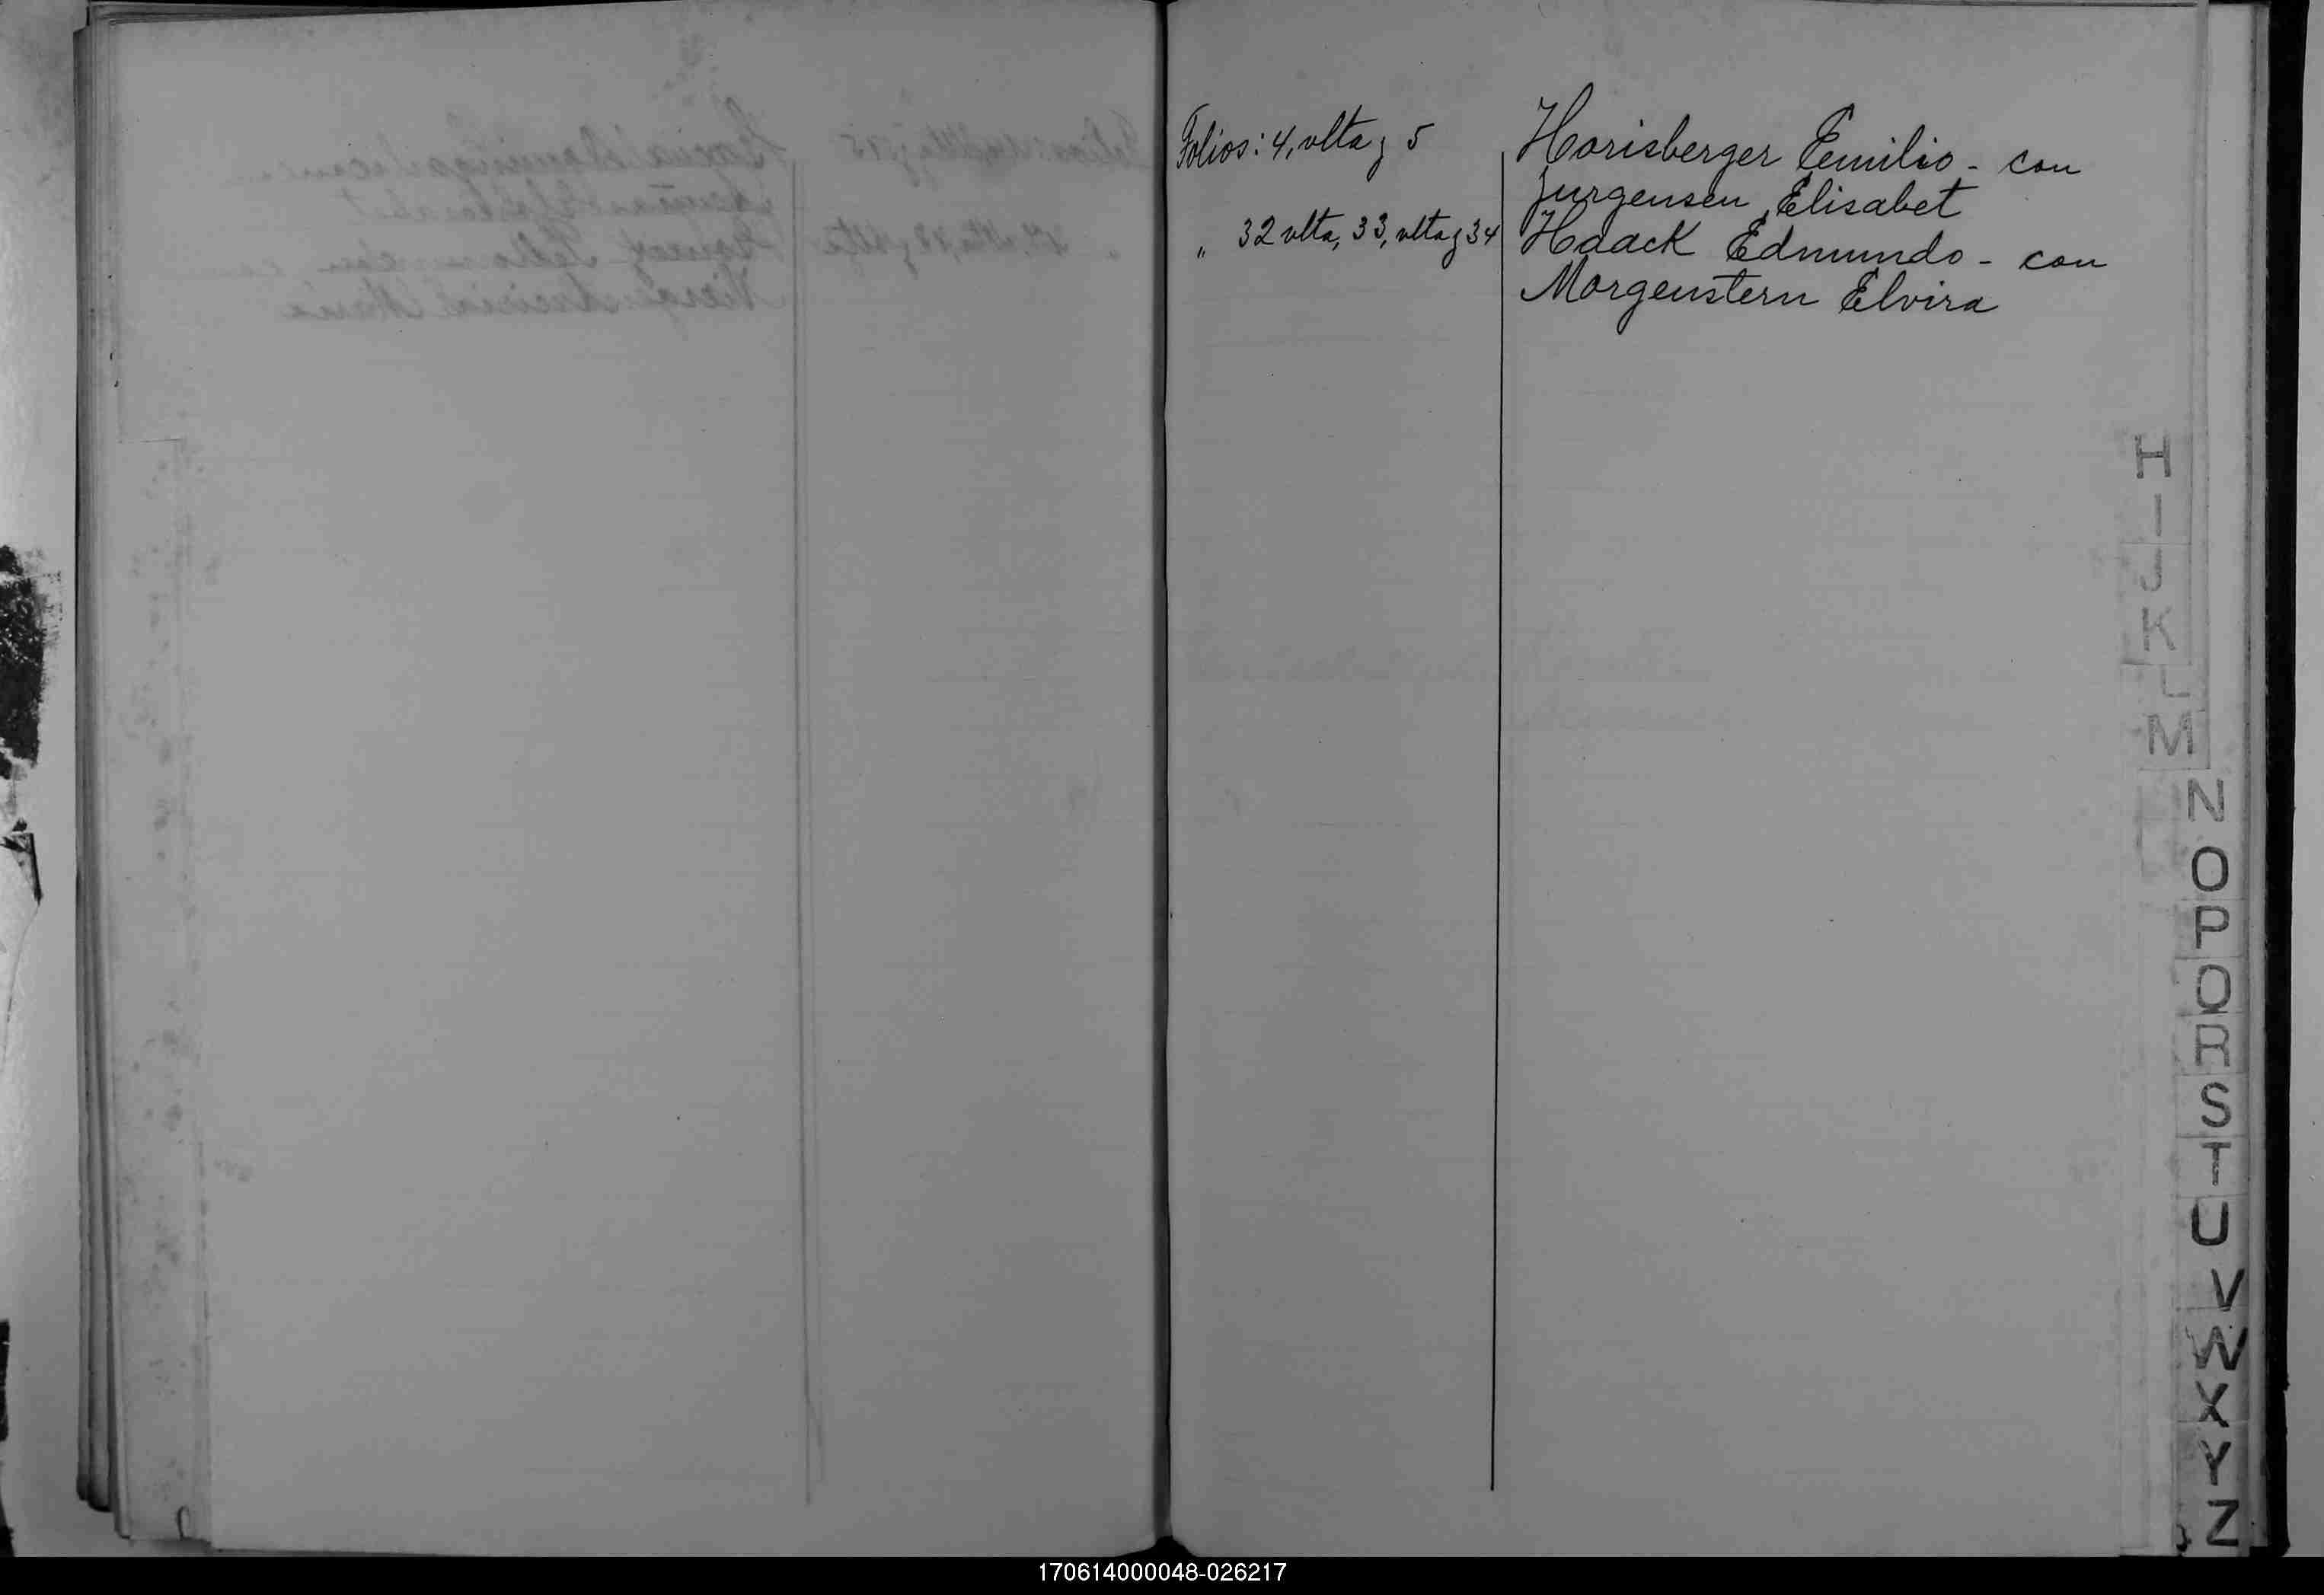 Folios: 4, vlta y 5 Horisberger Emilio - con
Jurgensen Elisabet
" 32 vlta, 33, vlta y 34 Haack Edmundo - con
Morgenstern Elvira
H
I
J
K
L
M
N
O
P
Q
R
S
T
U
V
W
X
Y
Z
170614000048-026217